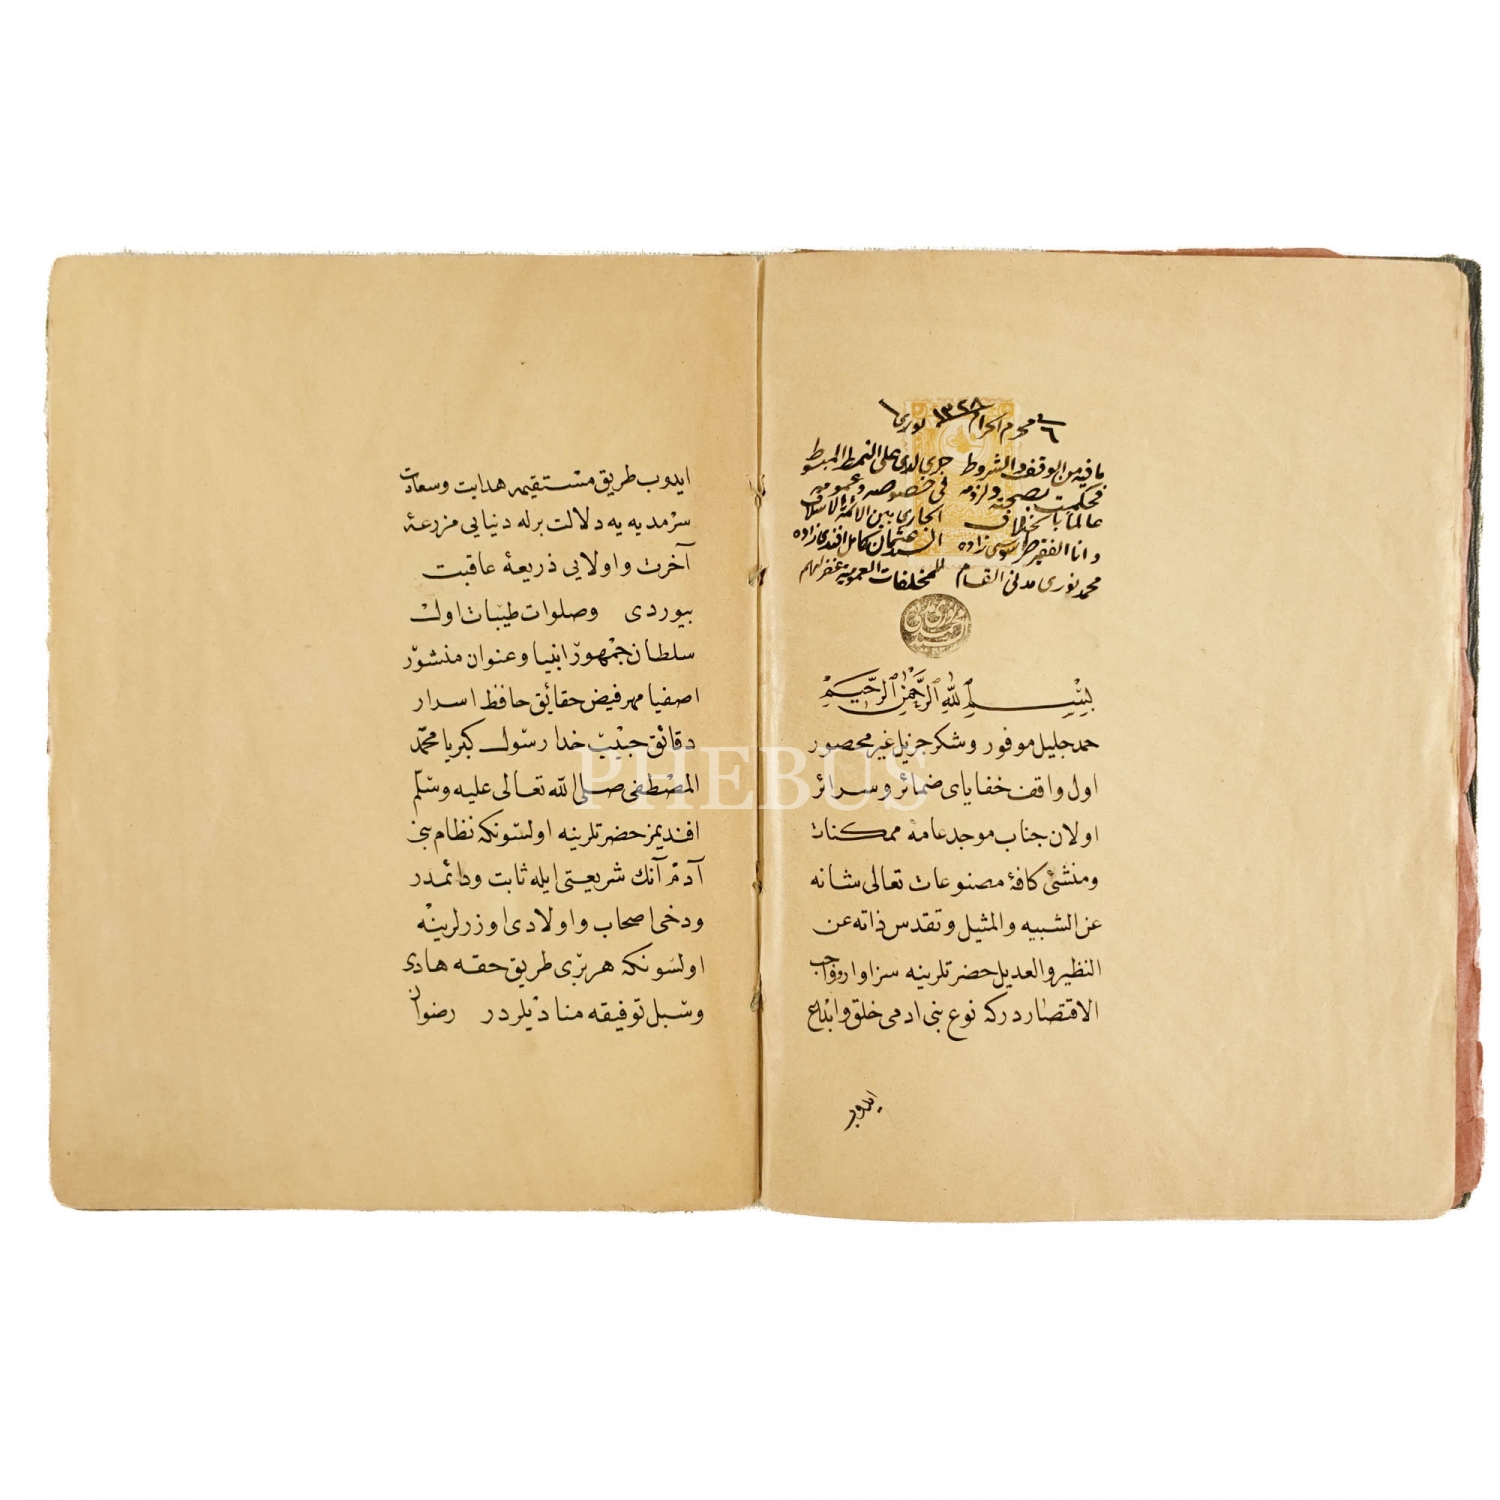 ٦ محرم الحرام ١٣٢٨ نوری
ما فيه من الوقف والشروط جرى لدى على النمط المبسوط
فحكمت بصحته ولزومه فى خصوصه وعمومه
عالماً بالخلاف الجارى بين الائمة الاسلاف
وانا الفقير موسى زاده السيد عثمان كامل افندى زاده
محمد نورى مدنى القسام للمخلفات العمومية غفر لهم
بسم الله الرحمن الرحيم
حمد جليل موفور وشكر جزيل غير محصور
اول واقف خفاياى ضمائر وسرائر
اولان جناب موجد عامۀ ممكنات
ومنشئ كافۀ مصنوعات تعالى شانه
عن الشبيه والمثيل وتقدس ذاته عن
النظير والعديل حضرتلرينه سزاوار وواجب
الاقتصاردركه نوع بنى ادمى خلق وابداع
ايدوب
ايدوب طريق مستقيمه هدايت وسعادت
سرمديه يه دلالت برله دنيايى مزرعۀ
آخرت واولايى ذريعۀ عاقبت
بيوردى وصلوات طيبات اول
سلطان جمهور انبيا وعنوان منشور
اصفيا مهر فيض حقائق حافظ اسرار
دقائق حبيب خدا رسول كبريا محمّد
المصطفى صلى الله تعالى عليه وسلّم
افنديمز حضرتلرينه اولسونكه نظام بنى
آدم آنك شريعتى ايله ثابت ودائمدر
ودخى اصحاب واولادى اوزرلرينه
اولسونكه هربرى طريق حقه هادى
وسبل توفيقه مناديلردر رضوان
PHEBUS